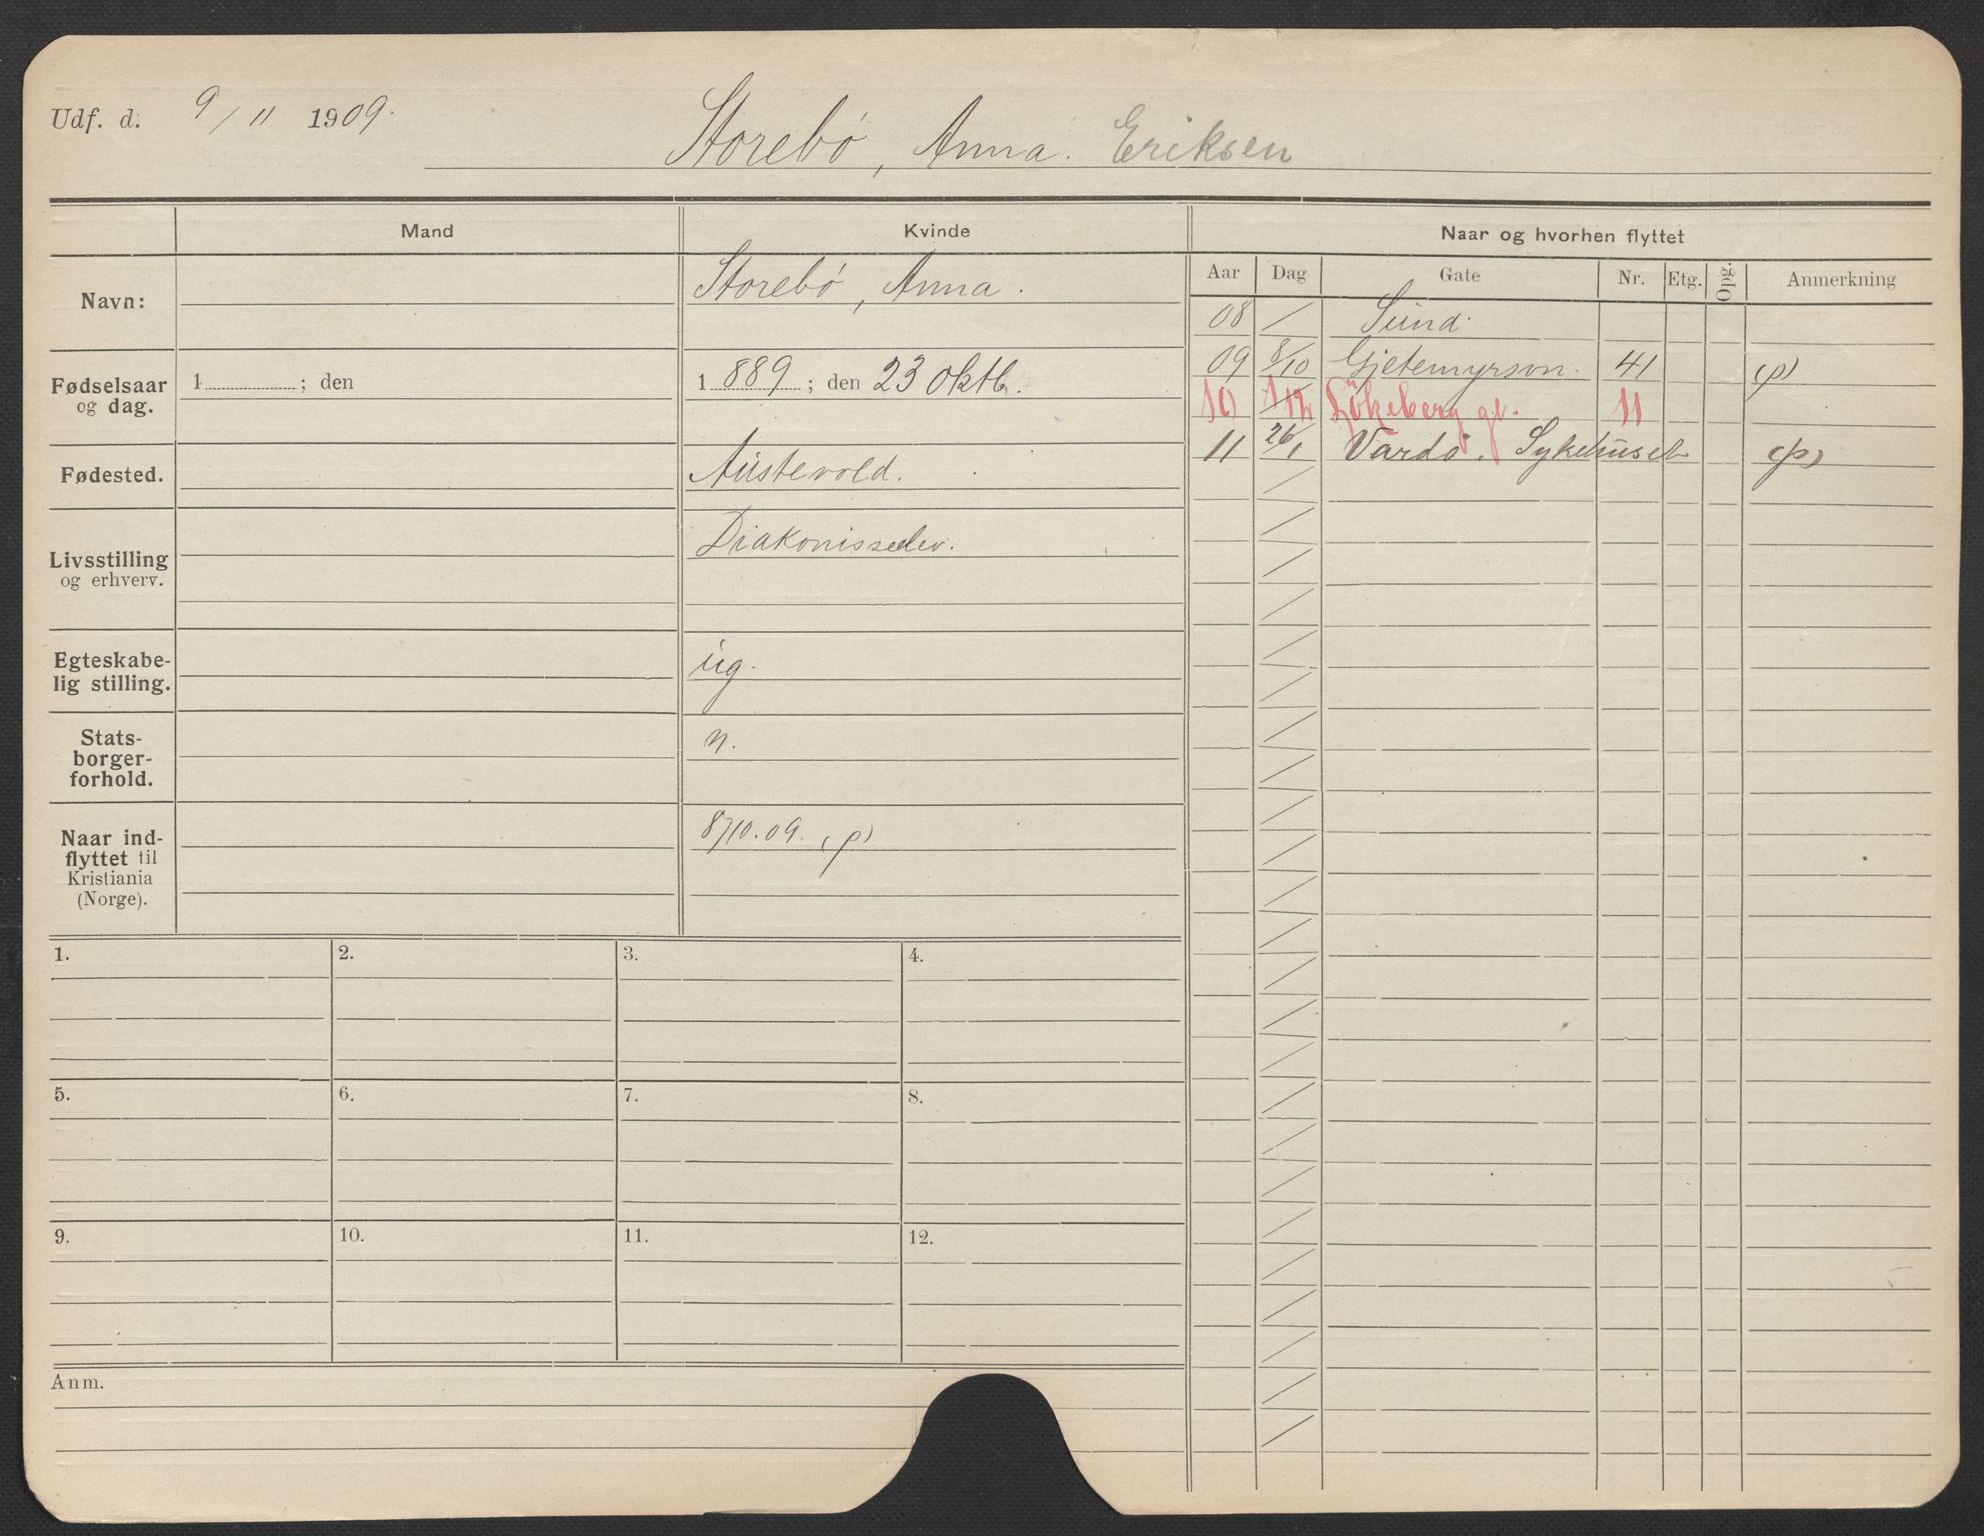 Udf. d. 9/11 1909.
Storebö, Anna. Eriksen
Mand
Kvinde
Naar og hvorhen flyttet
Aar Dag Gate Nr. Etg. Opg. Anmerkning
Navn: Storebö, Anna.
Fødselsaar og dag.
1 ; den
1 889 ; den 23 oktb.
Fødested. Austevold.
Livsstilling og erhverv. Diakonisseelev.
Egteskabe-
lig stilling. ug.
Stats-
borger-
forhold. n.
Naar ind-
flyttet til
Kristiania
(Norge). 8/10.09. (p)
08 / Sund.
09 8/10 Gjetemyrsvn. 41 (p)
10 1/12 Lökeberg gt. 11
11 26/1 Vardö. Sykehuset (p)
1. 2. 3. 4.
5. 6. 7. 8.
9. 10. 11. 12.
Anm.